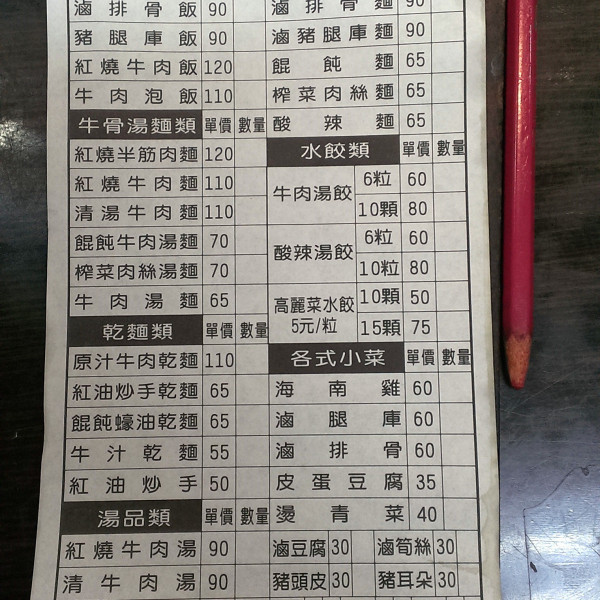 滷排骨飯 90
豬腿庫飯 90
紅燒牛肉飯 120
牛肉泡飯 110
牛骨湯麵類 單價 數量
紅燒半筋肉麵 120
紅燒牛肉麵 110
清湯牛肉麵 110
餛飩牛肉湯麵 70
榨菜肉絲湯麵 70
牛肉湯麵 65
乾麵類 單價 數量
原汁牛肉乾麵 110
紅油炒手乾麵 65
餛飩蠔油乾麵 65
牛汁乾麵 55
紅油炒手 50
湯品類 單價 數量
紅燒牛肉湯 90
清牛肉湯 90
滷排骨麵 90
滷豬腿庫麵 90
餛飩麵 65
榨菜肉絲麵 65
酸辣麵 65
水餃類 單價 數量
牛肉湯餃 6粒 60
10顆 80
酸辣湯餃 6粒 60
10粒 80
高麗菜水餃 10顆 50
5元/粒 15顆 75
各式小菜 單價 數量
海南雞 60
滷腿庫 60
滷排骨 60
皮蛋豆腐 35
燙青菜 40
滷豆腐 30 滷筍絲 30
豬頭皮 30 豬耳朵 30